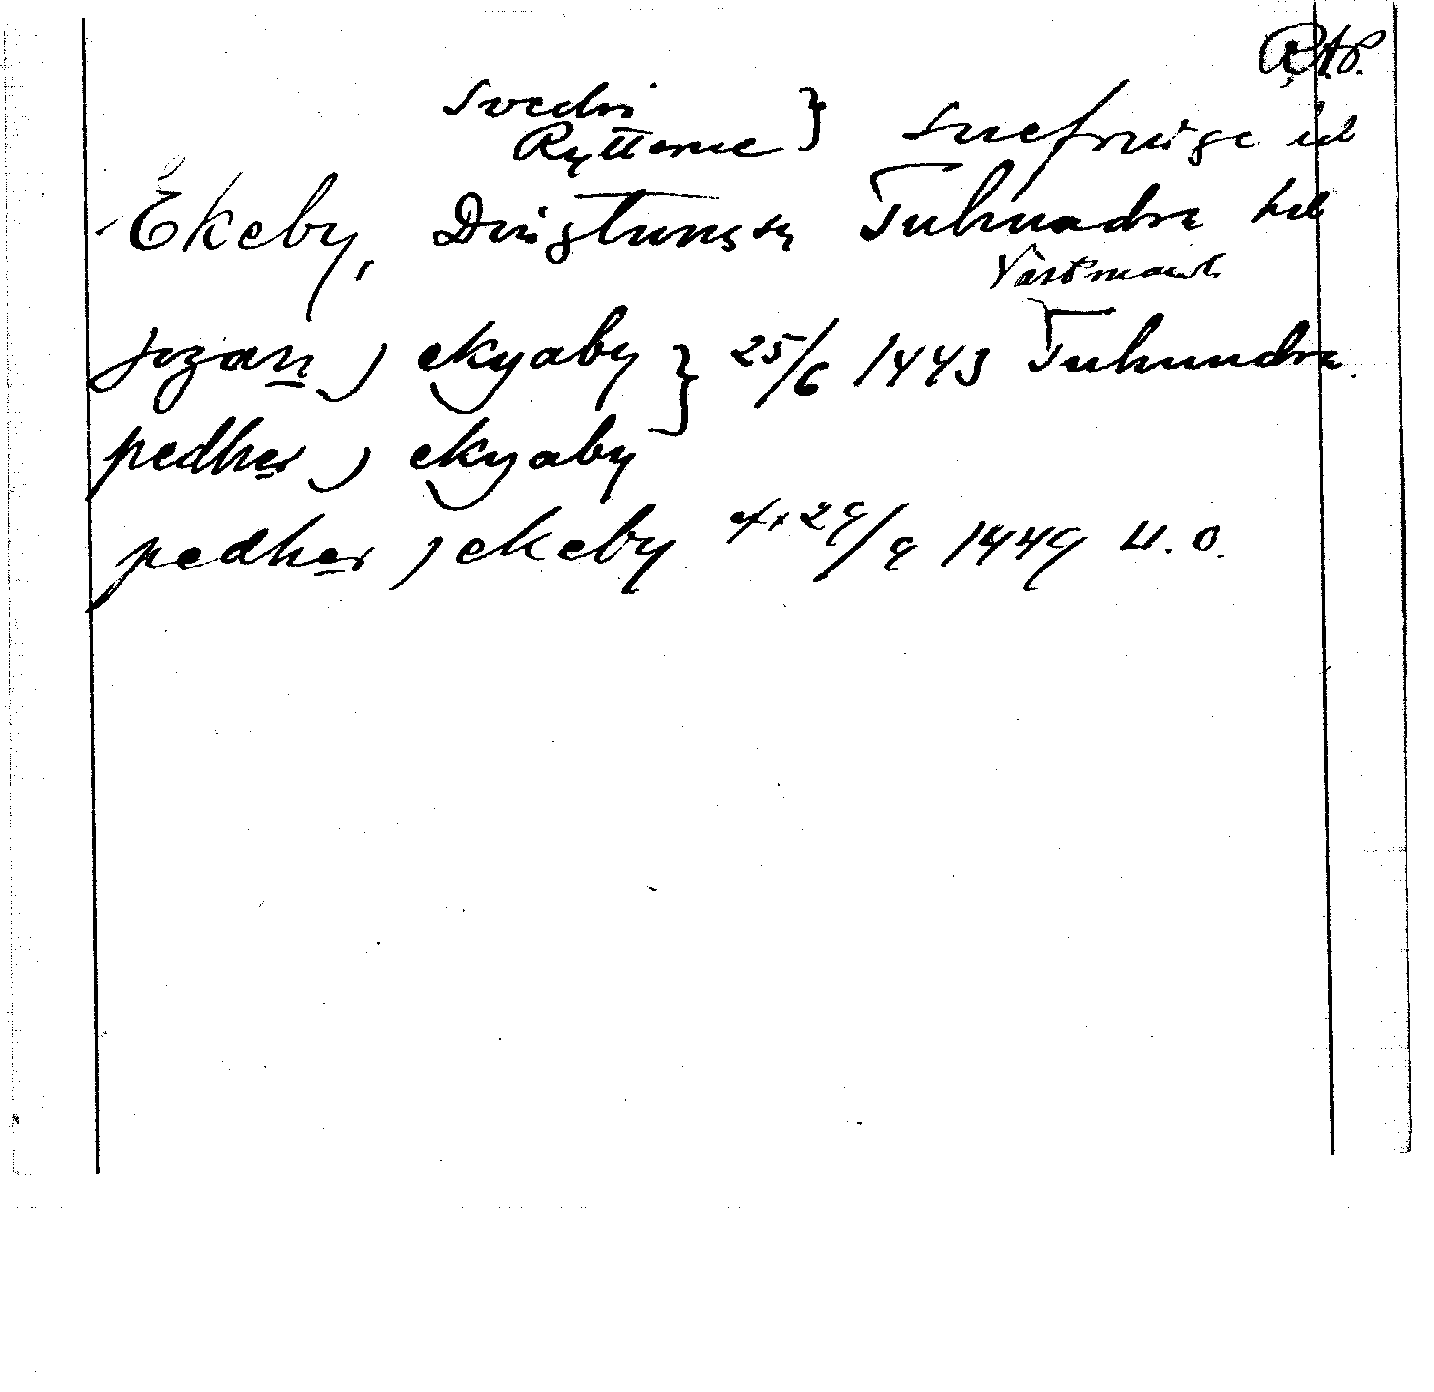 RAP.
Svedvi
Rytterne } Snefringe hd
Ekeby, Dingtuna sn Tuhundra hd
Västmanl.
jozan j ekyaby } 25/6 1443 Tuhundra.
pedher j ekyaby
pedher j ekeby 29/9 1449 U.O.